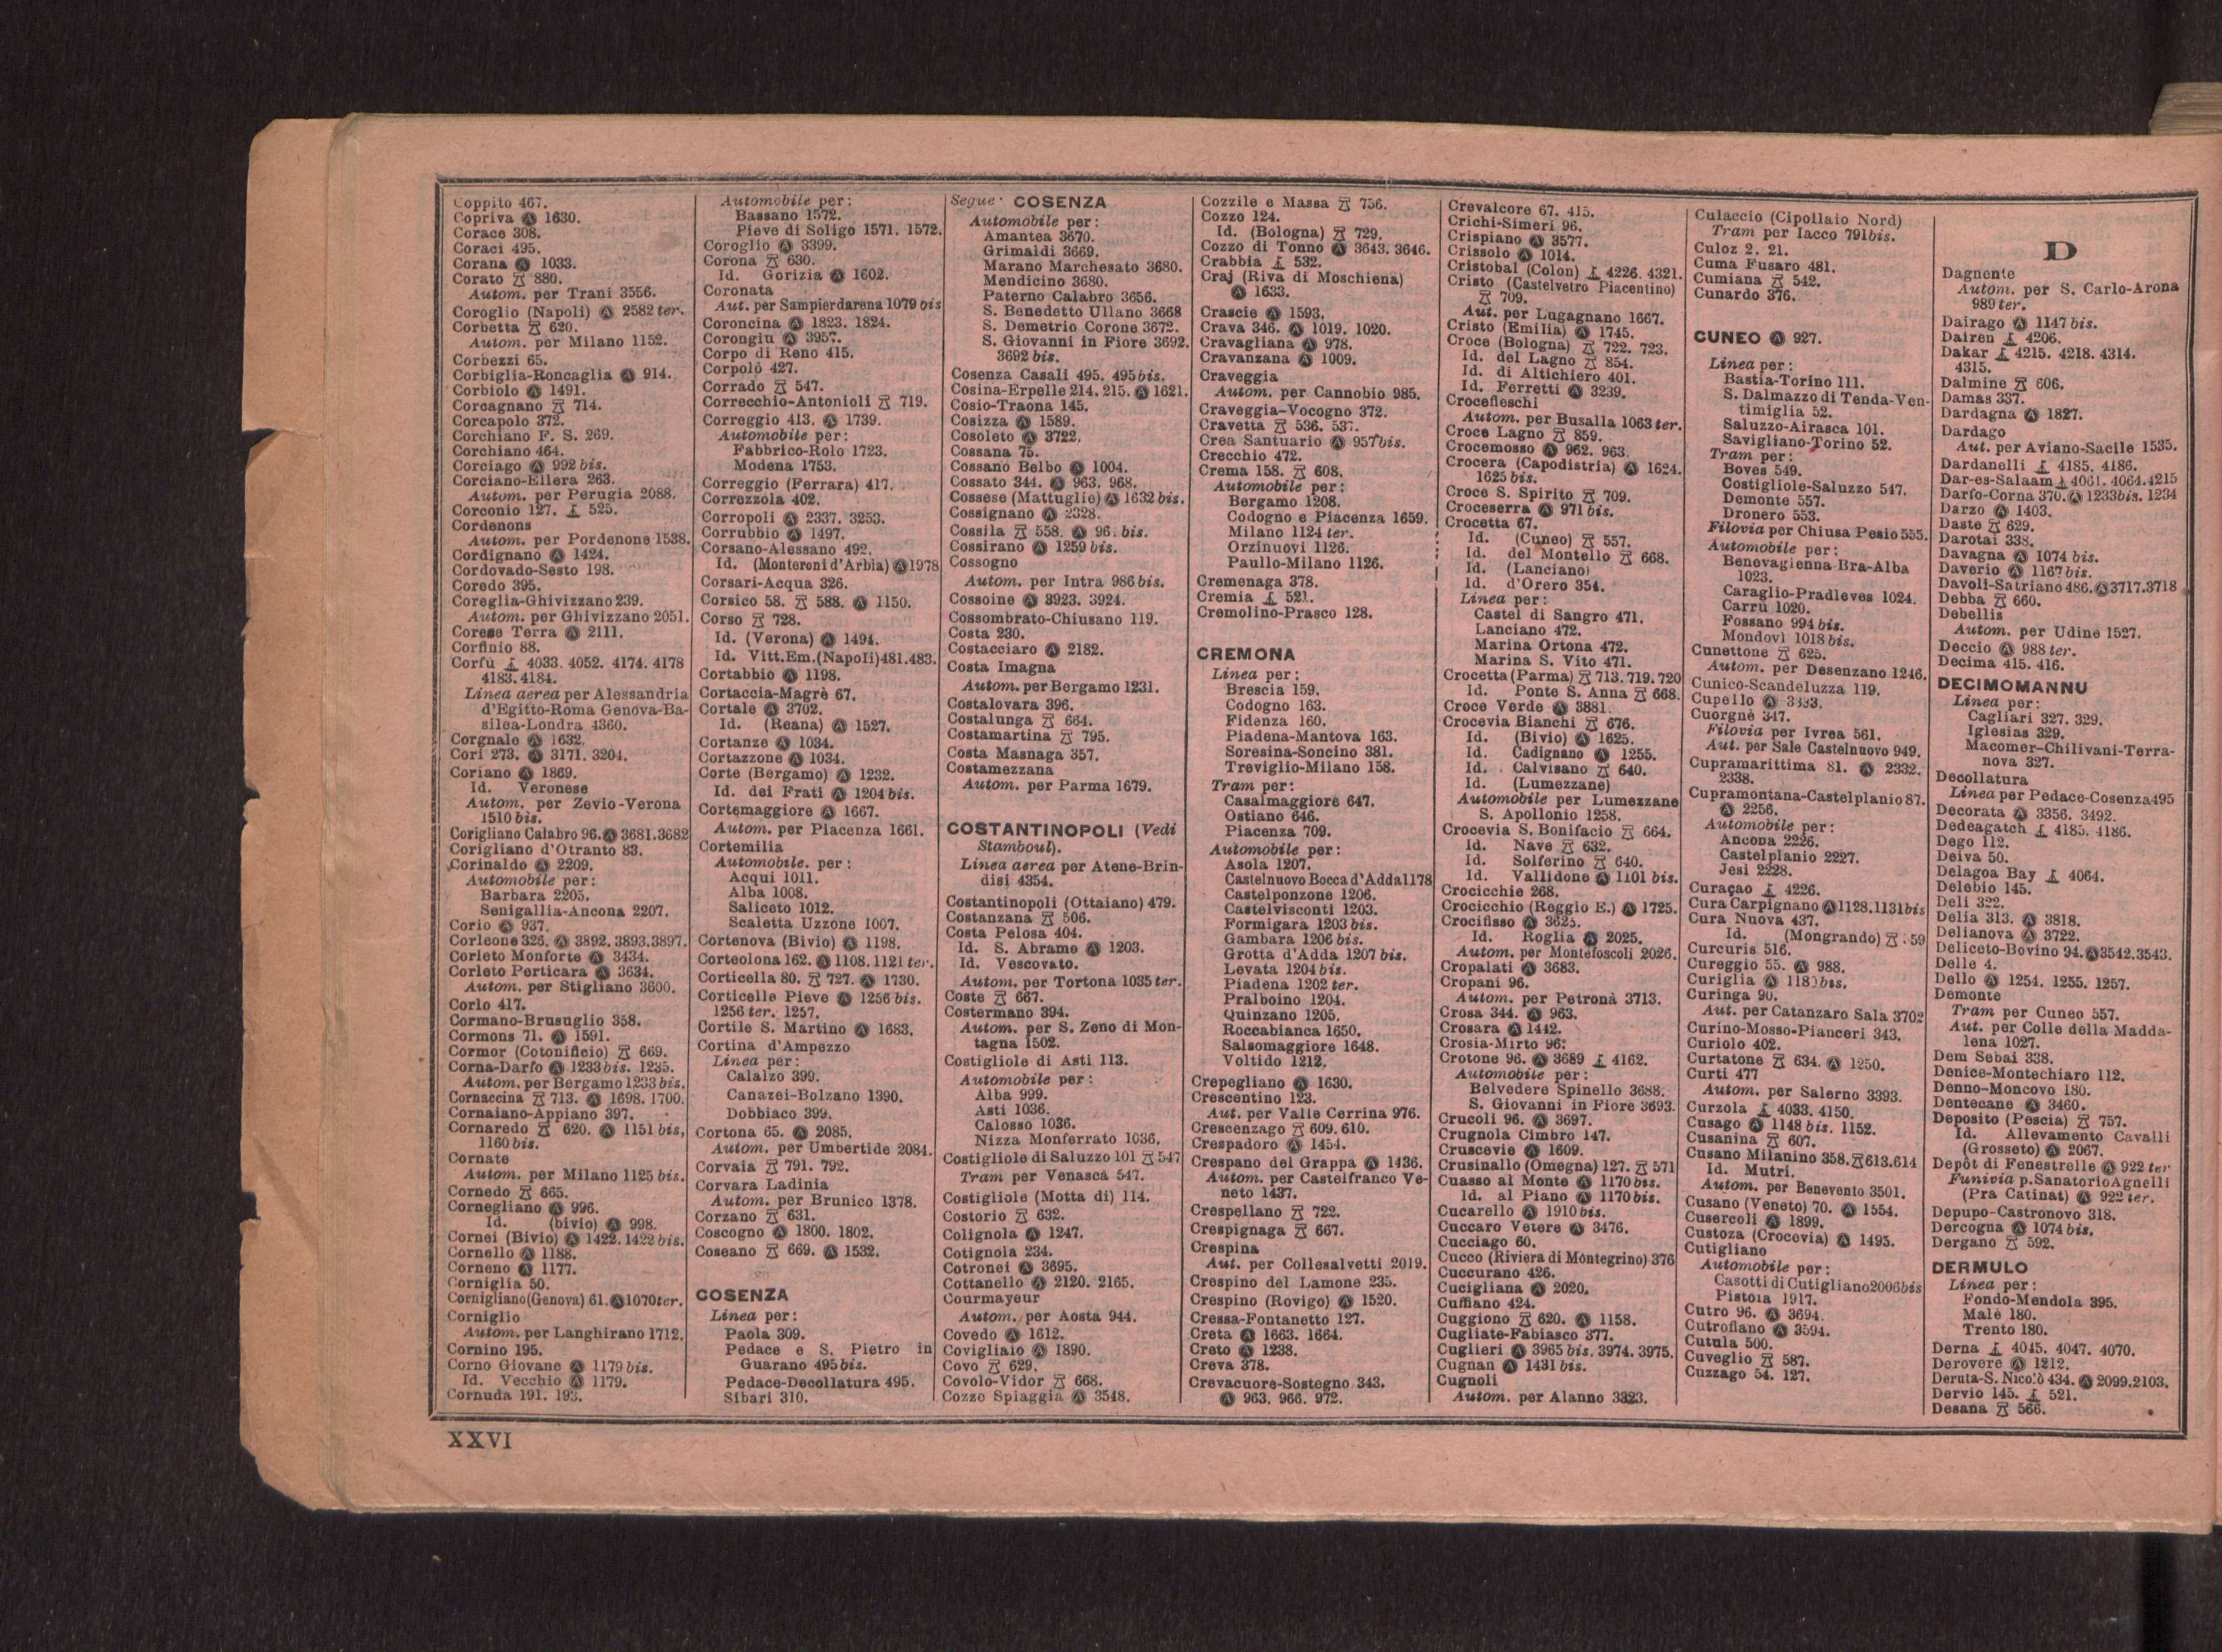 Coppito 467.
Copriva Ⓐ 1630.
Corace 308.
Coraci 495.
Corana Ⓐ 1033.
Corato 880.
Autom. per Trani 3556.
Coroglio (Napoli) Ⓐ 2582 ter.
Corbetta 620.
Autom. per Milano 1152.
Corbezzi 65.
Corbiglia-Roncaglia Ⓐ 914.
Corbiolo Ⓐ 1491.
Corcagnano 714.
Corcapolo 372.
Corchiano F. S. 269.
Corchiano 464.
Corciago Ⓐ 992 bis.
Corciano-Ellera 263.
Autom. per Perugia 2088.
Corconio 127. 525.
Cordenons
Autom. per Pordenone 1538.
Cordignano Ⓐ 1424.
Cordovado-Sesto 198.
Coredo 395.
Coreglia-Ghivizzano 239.
Autom. per Ghivizzano 2051.
Corese Terra Ⓐ 2111.
Corfinio 88.
Corfù 4033. 4052. 4174. 4178
4183. 4184.
Linea aerea per Alessandria
d'Egitto-Roma Genova-Ba-
silea-Londra 4360.
Corgnale Ⓐ 1632.
Cori 273. Ⓐ 3171. 3204.
Coriano Ⓐ 1869.
Id. Veronese
Autom. per Zevio-Verona
1510 bis.
Corigliano Calabro 96. Ⓐ 3681.3682
Corigliano d'Otranto 83.
Corinaldo Ⓐ 2209.
Automobile per:
Barbara 2205.
Senigallia-Ancona 2207.
Corio Ⓐ 937.
Corleone 326. Ⓐ 3892. 3893.3897.
Corleto Monforte Ⓐ 3434.
Corleto Perticara Ⓐ 3634.
Autom. per Stigliano 3600.
Corlo 417.
Cormano-Brusuglio 358.
Cormons 71. Ⓐ 1591.
Cormor (Cotonificio) 669.
Corna-Darfo Ⓐ 1233 bis. 1235.
Autom. per Bergamo 1233 bis.
Cornaccina 713. Ⓐ 1698. 1700.
Cornaiano-Appiano 397.
Cornaredo 620. Ⓐ 1151 bis,
1160 bis.
Cornate
Autom. per Milano 1125 bis.
Cornedo 665.
Cornegliano Ⓐ 996.
Id. (bivio) Ⓐ 998.
Cornei (Bivio) Ⓐ 1422. 1422 bis.
Cornello Ⓐ 1188.
Corneno Ⓐ 1177.
Corniglia 50.
Cornigliano (Genova) 61. Ⓐ 1070 ter.
Corniglio
Autom. per Langhirano 1712.
Cornino 195.
Corno Giovane Ⓐ 1179 bis.
Id. Vecchio Ⓐ 1179.
Cornuda 191. 193.
Automobile per:
Bassano 1572.
Pieve di Soligo 1571. 1572.
Coroglio Ⓐ 3399.
Corona 630.
Id. Gorizia Ⓐ 1602.
Coronata
Aut. per Sampierdarena 1079 bis
Coroncina Ⓐ 1823. 1824.
Corongiu Ⓐ 3957.
Corpo di Reno 415.
Corpolò 427.
Corrado 547.
Correcchio-Antonioli 719.
Correggio 413. Ⓐ 1739.
Automobile per:
Fabbrico-Rolo 1723.
Modena 1753.
Correggio (Ferrara) 417.
Correzzola 402.
Corropoli Ⓐ 2337. 3253.
Corrubbio Ⓐ 1497.
Corsano-Alessano 492.
Id. (Monteroni d'Arbia) Ⓐ 1978
Corsari-Acqua 326.
Corsico 58. 588. Ⓐ 1150.
Corso 728.
Id. (Verona) Ⓐ 1494.
Id. Vitt.Em.(Napoli)481.483.
Cortabbio Ⓐ 1198.
Cortaccia-Magrè 67.
Cortale Ⓐ 3702.
Id. (Reana) Ⓐ 1527.
Cortanze Ⓐ 1034.
Cortazzone Ⓐ 1034.
Corte (Bergamo) Ⓐ 1232.
Id. dei Frati Ⓐ 1204 bis.
Cortemaggiore Ⓐ 1667.
Autom. per Piacenza 1661.
Cortemilia
Automobile. per:
Acqui 1011.
Alba 1008.
Saliceto 1012.
Scaletta Uzzone 1007.
Cortenova (Bivio) Ⓐ 1198.
Corteolona 162. Ⓐ 1108. 1121 ter.
Corticella 80. 727. Ⓐ 1730.
Corticelle Pieve Ⓐ 1256 bis.
1256 ter. 1257.
Cortile S. Martino Ⓐ 1683.
Cortina d'Ampezzo
Linea per:
Calalzo 399.
Canazei-Bolzano 1390.
Dobbiaco 399.
Cortona 65. Ⓐ 2085.
Autom. per Umbertide 2084.
Corvaia 791. 792.
Corvara Ladinia
Autom. per Brunico 1378.
Corzano 631.
Coscogno Ⓐ 1800. 1802.
Coseano 669. Ⓐ 1532.
COSENZA
Linea per:
Paola 309.
Pedace e S. Pietro in
Guarano 495 bis.
Pedace-Decollatura 495.
Sibari 310.
Segue COSENZA
Automobile per:
Amantea 3670.
Grimaldi 3669.
Marano Marchesato 3680.
Mendicino 3680.
Paterno Calabro 3656.
S. Benedetto Ullano 3668
S. Demetrio Corone 3672.
S. Giovanni in Fiore 3692.
3692 bis.
Cosenza Casali 495. 495 bis.
Cosina-Erpelle 214. 215. Ⓐ 1621.
Cosio-Traona 145.
Cosizza Ⓐ 1589.
Cosoleto Ⓐ 3722.
Cossana 75.
Cossano Belbo Ⓐ 1004.
Cossato 344. Ⓐ 963. 968.
Cossese (Mattuglie) Ⓐ 1632 bis.
Cossignano Ⓐ 2328.
Cossila 558. Ⓐ 96. bis.
Cossirano Ⓐ 1259 bis.
Cossogno
Autom. per Intra 986 bis.
Cossoine Ⓐ 3923. 3924.
Cossombrato-Chiusano 119.
Costa 230.
Costacciaro Ⓐ 2182.
Costa Imagna
Autom. per Bergamo 1231.
Costalovara 396.
Costalunga 664.
Costamartina 795.
Costa Masnaga 357.
Costamezzana
Autom. per Parma 1679.
COSTANTINOPOLI (Vedi
Stamboul).
Linea aerea per Atene-Brin-
disi 4354.
Costantinopoli (Ottaiano) 479.
Costanzana 506.
Costa Pelosa 404.
Id. S. Abramo Ⓐ 1203.
Id. Vescovato.
Autom. per Tortona 1035 ter.
Coste 667.
Costermano 394.
Autom. per S. Zeno di Mon-
tagna 1502.
Costigliole di Asti 113.
Automobile per:
Alba 999.
Asti 1036.
Calosso 1036.
Nizza Monferrato 1036.
Costigliole di Saluzzo 101 547
Tram per Venasca 547.
Costigliole (Motta di) 114.
Costorio 632.
Cotignola Ⓐ 1247.
Cotignola 234.
Cotronei Ⓐ 3695.
Cottanello Ⓐ 2120. 2165.
Courmayeur
Autom. per Aosta 944.
Covedo Ⓐ 1612.
Covigliaio Ⓐ 1890.
Covo 629.
Covolo-Vidor 668.
Cozze Spiaggia Ⓐ 3548.
Cozzile e Massa 756.
Cozzo 124.
Id. (Bologna) 729.
Cozzo di Tonno Ⓐ 3643. 3646.
Crabbia 532.
Craj (Riva di Moschiena)
Ⓐ 1633.
Crascie Ⓐ 1593.
Crava 346. Ⓐ 1019. 1020.
Cravagliana Ⓐ 978.
Cravanzana Ⓐ 1009.
Craveggia
Autom. per Cannobio 985.
Craveggia-Vocogno 372.
Cravetta 536. 537.
Crea Santuario Ⓐ 957 bis.
Crecchio 472.
Crema 158. 608.
Automobile per:
Bergamo 1208.
Codogno e Piacenza 1659.
Milano 1124 ter.
Orzinuovi 1126.
Paullo-Milano 1126.
Cremenaga 378.
Cremia 521.
Cremolino-Prasco 128.
CREMONA
Linea per:
Brescia 159.
Codogno 163.
Fidenza 160.
Piadena-Mantova 163.
Soresina-Soncino 381.
Treviglio-Milano 158.
Tram per:
Casalmaggiore 647.
Ostiano 646.
Piacenza 709.
Automobile per:
Asola 1207.
Castelnuovo Bocca d'Adda 1178
Castelponzone 1206.
Castelvisconti 1203.
Formigara 1203 bis.
Gambara 1206 bis.
Grotta d'Adda 1207 bis.
Levata 1204 bis.
Piadena 1202 ter.
Pralboino 1204.
Quinzano 1205.
Roccabianca 1650.
Salsomaggiore 1648.
Voltido 1212.
Crepegliano Ⓐ 1630.
Crescentino 123.
Aut. per Valle Cerrina 976.
Crescenzago 609. 610.
Crespadoro Ⓐ 1454.
Crespano del Grappa Ⓐ 1436.
Autom. per Castelfranco Ve-
neto 1437.
Crespellano 722.
Crespignaga 667.
Crespina
Aut. per Collesalvetti 2019.
Crespino del Lamone 235.
Crespino (Rovigo) Ⓐ 1520.
Cressa-Fontanetto 127.
Creta Ⓐ 1663. 1664.
Creto Ⓐ 1238.
Creva 378.
Crevacuore-Sostegno 343.
Ⓐ 963. 966. 972.
Crevalcore 67. 415.
Crichi-Simeri 96.
Crispiano Ⓐ 3577.
Crissolo Ⓐ 1014.
Cristobal (Colon) 4226. 4321.
Cristo (Castelvetro Piacentino)
709.
Aut. per Lugagnano 1667.
Cristo (Emilia) Ⓐ 1745.
Croce (Bologna) 722. 723.
Id. del Lagno 854.
Id. di Altichiero 401.
Id. Ferretti Ⓐ 3239.
Crocefieschi
Autom. per Busalla 1063 ter.
Croce Lagno 859.
Crocemosso Ⓐ 962. 963.
Crocera (Capodistria) Ⓐ 1624.
1625 bis.
Croce S. Spirito 709.
Croceserra Ⓐ 971 bis.
Crocetta 67.
Id. (Cuneo) 557.
Id. del Montello 668.
Id. (Lanciano)
Id. d'Orero 354.
Linea per:
Castel di Sangro 471.
Lanciano 472.
Marina Ortona 472.
Marina S. Vito 471.
Crocetta (Parma) 713. 719. 720
Id. Ponte S. Anna 668.
Croce Verde Ⓐ 3881.
Crocevia Bianchi 676.
Id. (Bivio) Ⓐ 1625.
Id. Cadignano Ⓐ 1255.
Id. Calvisano 640.
Id. (Lumezzane)
Automobile per Lumezzane
S. Apollonio 1258.
Crocevia S. Bonifacio 664.
Id. Nave 632.
Id. Solferino 640.
Id. Vallidone Ⓐ 1101 bis.
Crocicchie 268.
Crocicchio (Reggio E.) Ⓐ 1725.
Crocifisso Ⓐ 3625.
Id. Roglia Ⓐ 2025.
Autom. per Montefoscoli 2026.
Cropalati Ⓐ 3683.
Cropani 96.
Autom. per Petronà 3713.
Crosa 344. Ⓐ 963.
Crosara Ⓐ 1442.
Crosia-Mirto 96.
Crotone 96. Ⓐ 3689 4162.
Automobile per:
Belvedere Spinello 3688.
S. Giovanni in Fiore 3693.
Crucoli 96. Ⓐ 3697.
Crugnola Cimbro 147.
Cruscevie Ⓐ 1609.
Crusinallo (Omegna) 127. 571
Cuasso al Monte Ⓐ 1170 bis.
Id. al Piano Ⓐ 1170 bis.
Cucarello Ⓐ 1910 bis.
Cuccaro Vetere Ⓐ 3476.
Cucciago 60.
Cucco (Riviera di Montegrino) 376
Cuccurano 426.
Cucigliana Ⓐ 2020.
Cuffiano 424.
Cuggiono 620. Ⓐ 1158.
Cugliate-Fabiasco 377.
Cuglieri Ⓐ 3965 bis. 3974. 3975.
Cugnan Ⓐ 1431 bis.
Cugnoli
Autom. per Alanno 3323.
Culaccio (Cipollaio Nord)
Tram per Iacco 791 bis.
Culoz 2. 21.
Cuma Fusaro 481.
Cumiana 542.
Cunardo 376.
CUNEO Ⓐ 927.
Linea per:
Bastia-Torino 111.
S. Dalmazzo di Tenda-Ven-
timiglia 52.
Saluzzo-Airasca 101.
Savigliano-Torino 52.
Tram per:
Boves 549.
Costigliole-Saluzzo 547.
Demonte 557.
Dronero 553.
Filovia per Chiusa Pesio 555.
Automobile per:
Benevagienna Bra-Alba
1023.
Caraglio-Pradleves 1024.
Carrù 1020.
Fossano 994 bis.
Mondovì 1018 bis.
Cunettone 625.
Autom. per Desenzano 1246.
Cunico-Scandeluzza 119.
Cupello Ⓐ 3333.
Cuorgnè 347.
Filovia per Ivrea 561.
Aut. per Sale Castelnuovo 949.
Cupramarittima 81. Ⓐ 2332.
2338.
Cupramontana-Castelplanio 87.
Ⓐ 2256.
Automobile per:
Ancona 2226.
Castelplanio 2227.
Jesi 2228.
Curaçao 4226.
Cura Carpignano Ⓐ 1128.1131 bis
Cura Nuova 437.
Id. (Mongrando) 59
Curcuris 516.
Cureggio 55. Ⓐ 988.
Curiglia Ⓐ 118 bis.
Curinga 90.
Aut. per Catanzaro Sala 3702
Curino-Mosso-Pianceri 343.
Curiolo 402.
Curtatone 634. Ⓐ 1250.
Curti 477
Autom. per Salerno 3393.
Curzola 4033. 4150.
Cusago Ⓐ 1148 bis. 1152.
Cusanina 607.
Cusano Milanino 358. 613.614
Id. Mutri.
Autom. per Benevento 3501.
Cusano (Veneto) 70. Ⓐ 1554.
Cusercoli Ⓐ 1899.
Custoza (Crocevia) Ⓐ 1495.
Cutigliano
Automobile per:
Casotti di Cutigliano 2006 bis
Pistoia 1917.
Cutro 96. Ⓐ 3694.
Cutrofiano Ⓐ 3594.
Cutula 500.
Cuveglio 587.
Cuzzago 54. 127.
D
Dagnente
Autom. per S. Carlo-Arona
989 ter.
Dairago Ⓐ 1147 bis.
Dairen 4206.
Dakar 4215. 4218. 4314.
4315.
Dalmine 606.
Damas 337.
Dardagna Ⓐ 1827.
Dardago
Aut. per Aviano-Sacile 1535.
Dardanelli 4185. 4186.
Dar-es-Salaam 4061. 4064.4215
Darfo-Corna 370. Ⓐ 1233bis. 1234
Darzo Ⓐ 1403.
Daste 629.
Darotai 338.
Davagna Ⓐ 1074 bis.
Daverio Ⓐ 1167 bis.
Davoli-Satriano 486. Ⓐ 3717.3718
Debba 660.
Debellis
Autom. per Udine 1527.
Deccio Ⓐ 988 ter.
Decima 415. 416.
DECIMOMANNU
Linea per:
Cagliari 327. 329.
Iglesias 329.
Macomer-Chilivani-Terra-
nova 327.
Decollatura
Linea per Pedace-Cosenza495
Decorata Ⓐ 3356. 3492.
Dedeagatch 4185. 4186.
Dego 112.
Deiva 50.
Delagoa Bay 4064.
Delebio 145.
Deli 322.
Delia 313. Ⓐ 3818.
Delianova Ⓐ 3722.
Deliceto-Bovino 94. Ⓐ 3542.3543.
Delle 4.
Dello Ⓐ 1254. 1255. 1257.
Demonte
Tram per Cuneo 557.
Aut. per Colle della Madda-
lena 1027.
Dem Sebai 338.
Denice-Montechiaro 112.
Denno-Moncovo 180.
Dentecane Ⓐ 3460.
Deposito (Pescia) 757.
Id. Allevamento Cavalli
(Grosseto) Ⓐ 2067.
Depôt di Fenestrelle Ⓐ 922 ter
Funivia p.Sanatorio Agnelli
(Pra Catinat) Ⓐ 922 ter.
Depupo-Castronovo 318.
Dercogna Ⓐ 1074 bis.
Dergano 592.
DERMULO
Linea per:
Fondo-Mendola 395.
Malè 180.
Trento 180.
Derna 4045. 4047. 4070.
Derovere Ⓐ 1212.
Deruta-S. Nicolò 434. Ⓐ 2099.2103.
Dervio 145. 521.
Desana 566.
XXVI